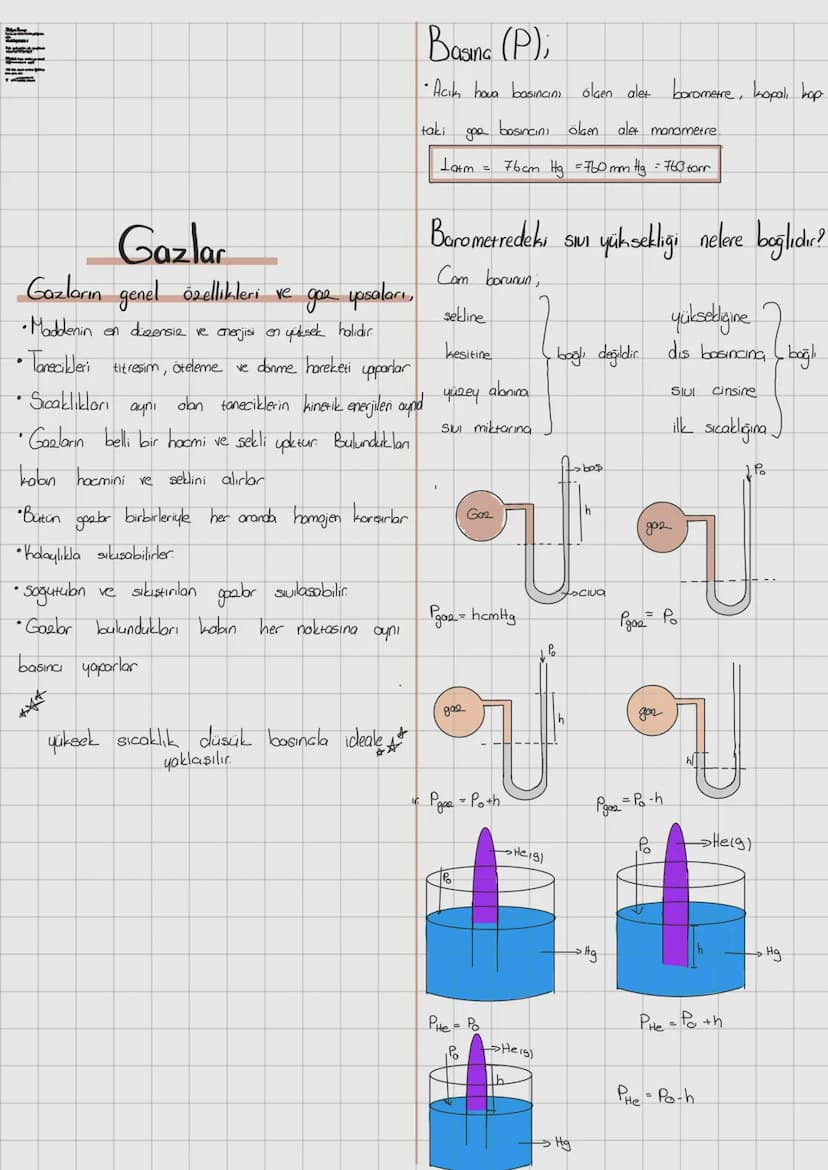 Gazlar
Gazların genel özellikleri ve gaz yasaları,
• Maddenin en düzensiz ve enerjisi en yüksek halidir.
• Tanecikleri titresim, öteleme ve dönme hareketi yaparlar
• Sıcaklıkları aynı olan taneciklerin kinetik enerjileri aynıd
• Gazların belli bir hacmi ve sekli yoktur. Bulundukları
kabın hacmini ve seklini alırlar
• Bütün gazlar birbirleriyle her oranda homojen karısırlar
• Kolaylıkla sıkısabilirler.
• soğutulan ve sıkıstırılan gazlar sıvılasabilir.
• Gazlar bulundukları kabın her noktasına aynı
basıncı yaparlar
yüksek sıcaklık düsük basıncla ideale
yaklasılır.
Basınc (P);
• Acık hava basıncını ölcen alet barometre, kapalı kap
taki gaz basıncını ölcen alet manometre
1 atm = 76 cm Hg = 760 mm Hg = 760 torr
Barometredeki sıvı yüksekliği nelere bağlıdır?
Cam borunun;
sekline
kesitine
yüzey alanına
sıvı miktarına
bağlı değildir.
yüksekliğine
dıs basıncına
sıvı cinsine
ilk sıcaklığına
bağlı
Gaz
bos
h
civa
Pgaz = hcmHg
gaz
P₀
Pgaz = P₀
gaz
P₀
h
ır. Pgaz = P₀+h
gaz
h
Pgaz = P₀-h
He(g)
P₀
Hg
PHe = P₀
P₀
He(g)
h
Hg
PHe = P₀ +h
P₀
He(g)
h
Hg
PHe = P₀-h